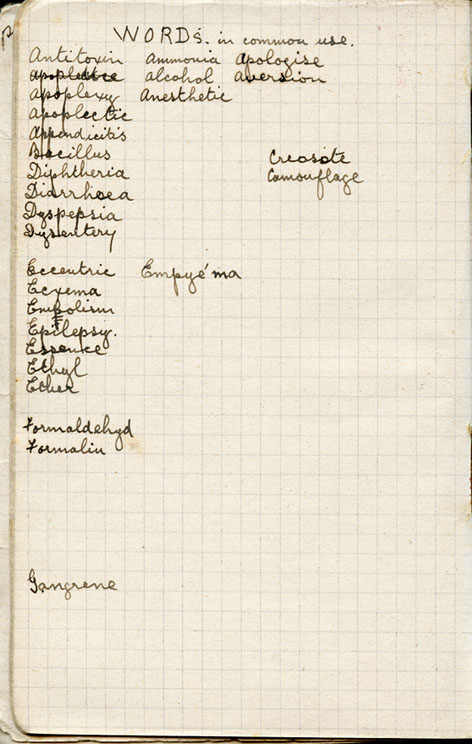 WORDS. in common use.
Antitoxin ammonia apologise
apoplectic alcohol aversion
apoplexy anesthetic
apoplectic
Appendicitis
Bacillus Creosote
Diphtheria Camouflage
Diarrhoea
Dyspepsia
Dysentery
Eccentric Empyéma
Ecxema
Embolism
Epilepsy.
Essence
Ethyl
Ether
Formaldehyd
Formalin
Gangrene